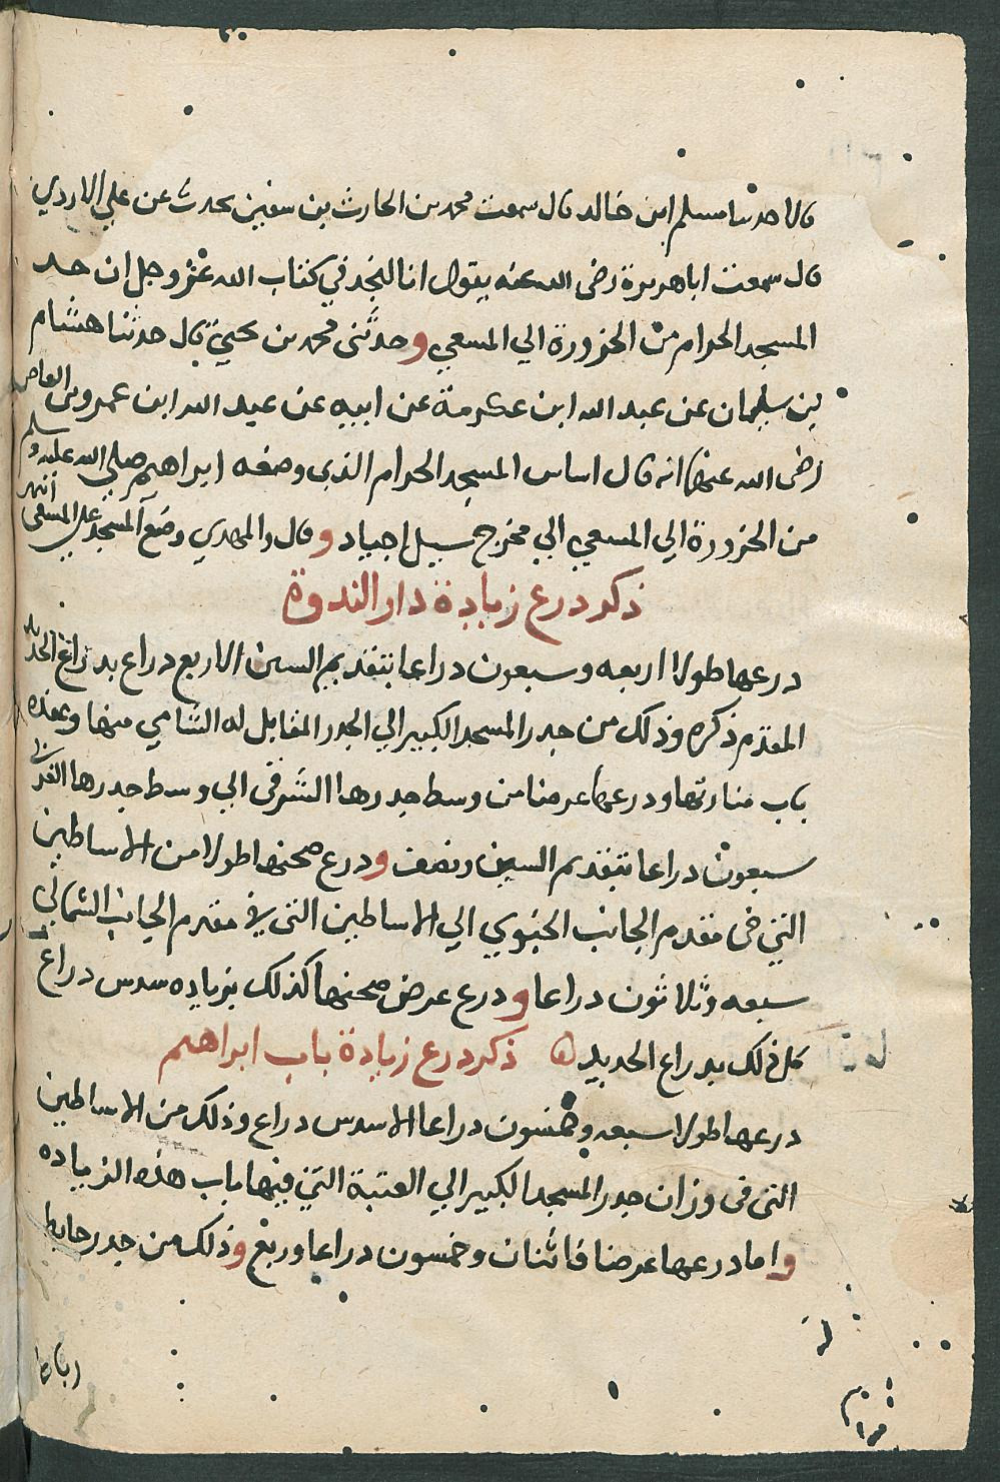 قالا حدثنا مسلم ابن خالد قال سمعت محمد بن الحارث بن سفين يحدث عن علي الازدي
قال سمعت ابا هريرة رضى الله عنه يقول انا لنجد في كتاب الله عز وجل ان حد
المسجد الحرام من الحزورة الي المسعي وحدثنى محمد بن يحيي قال حدثنا هشام
بن سليمان عن عبد الله ابن عكرمة عن ابيه عن عبد الله ابن عمرو بن العاص
رضى الله عنهما انه قال اساس المسجد الحرام الذى وضعه ابراهيم صلي الله عليه وسلم
من الحزورة الي المسعي الي مخرج سيل اجياد وقال والمهدي وضع المسجد علي المسعى انتهى
ذكر درع زيادة دار الندوة
درعها طولا اربعه وسبعون دراعا بتقديم السين الا ربع دراع بدراع الحديد
المقدم ذكره وذلك من جدر المسجد الكبير الي الجدر المقابل له الشامي منها وعنده
باب منارتها ودرعها عرضا من وسط جدرها الشرقى الي وسط جدرها الغربي
سبعون دراعا بتقديم السين ونصف ودرع صحنها طولا من الاساطين
التي فى مقدم الجانب الجنوبي الي الاساطين التى في مقدم الجانب الشمالي
سبعه وثلاثون دراعا ودرع عرض صحنها كذلك بزياده سدس دراع
كل ذلك بدراع الحديد ه ذكر درع زيادة باب ابراهيم
درعها طولا سبعه وخمسون دراعا الا سدس دراع وذلك من الاساطين
التى فى وزان جدر المسجد الكبير الي العتبة التي فيها باب هذه الزياده
واما درعها عرضا فاثنان وخمسون دراعا وربع وذلك من جدر حايط
رباط